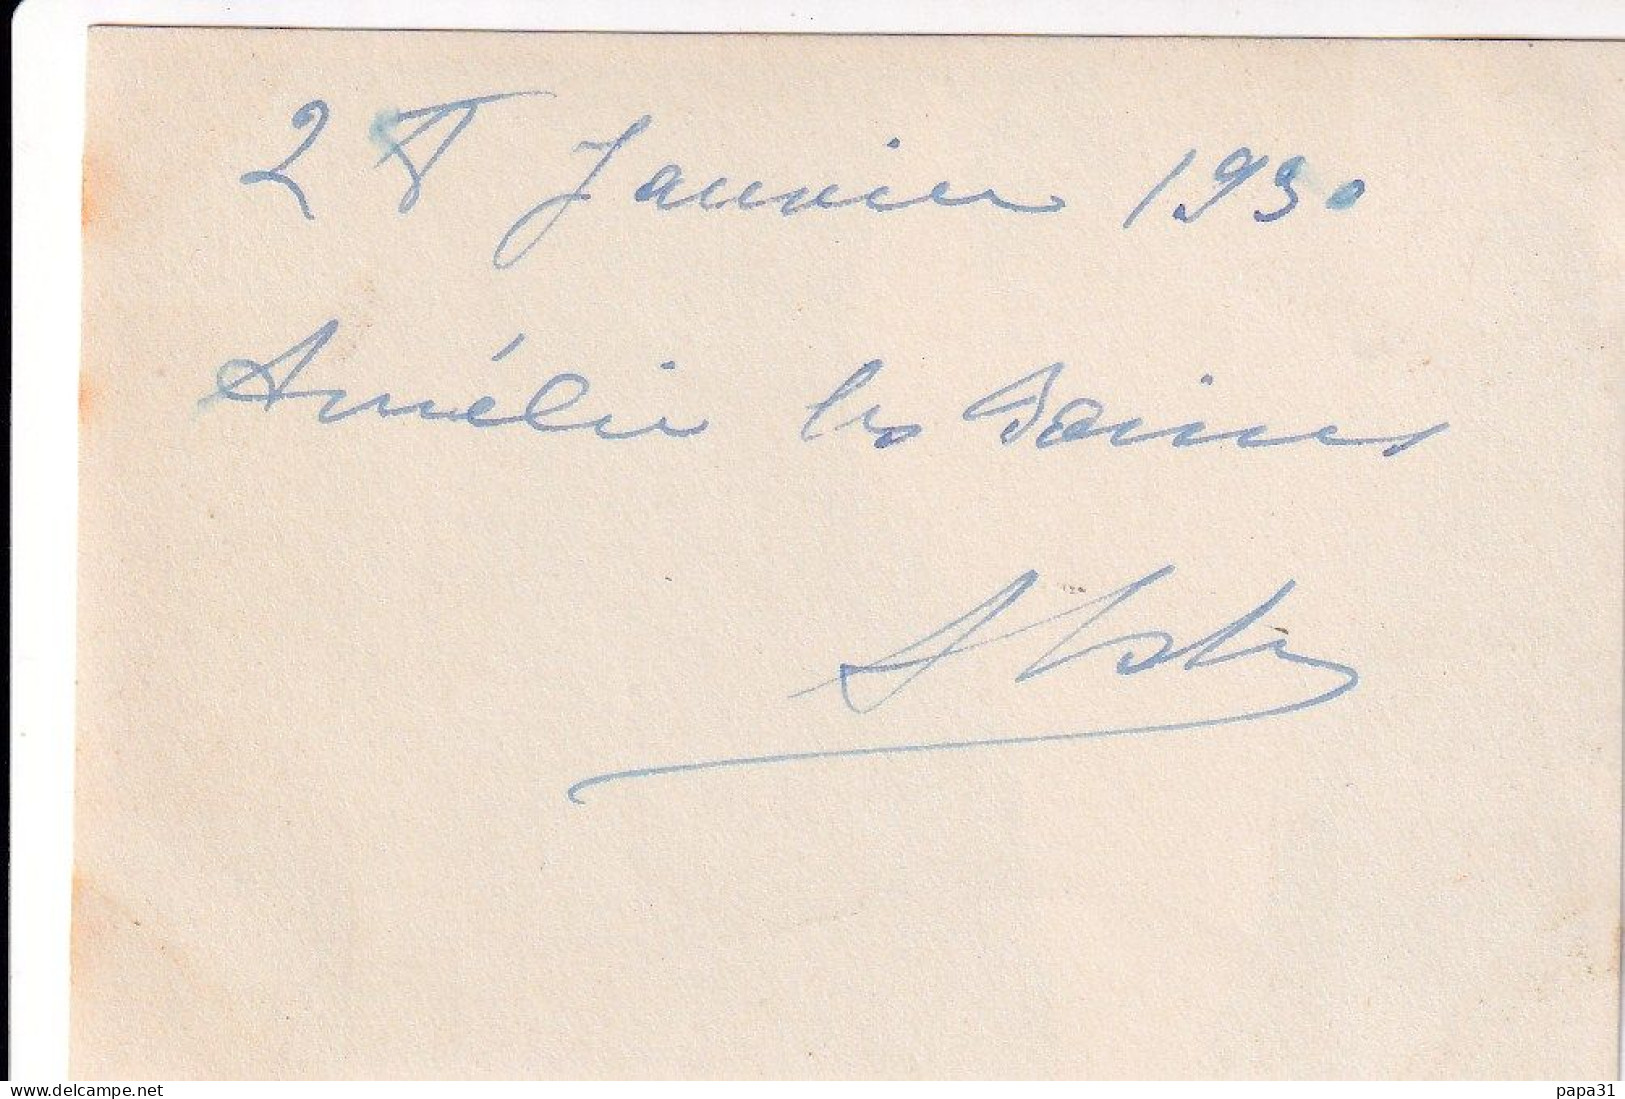 Janvier 1930
Amélie les Bains
www.delcampe.net
papa31